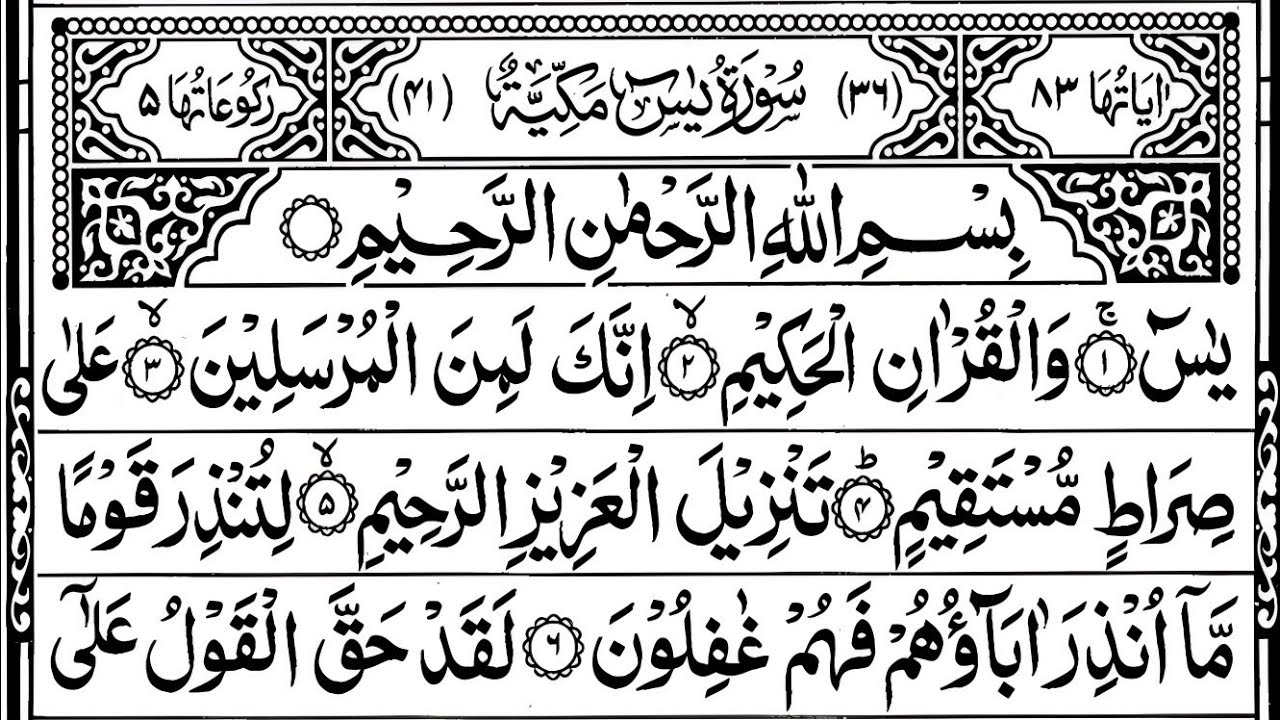 اٰيَاتُهَا ٨٣ (٣٦) سُوْرَةُ يٰسٓ مَكِّيَّةٌ (٤١) رُكُوْعَاتُهَا ٥
بِسْمِ اللّٰهِ الرَّحْمٰنِ الرَّحِيْمِ
يٰسٓ ۚ ﴿١﴾ وَالْقُرْاٰنِ الْحَكِيْمِ ۙ ﴿٢﴾ اِنَّكَ لَمِنَ الْمُرْسَلِيْنَ ۙ ﴿٣﴾ عَلٰى
صِرَاطٍ مُّسْتَقِيْمٍ ؕ ﴿۴﴾ تَنْزِيْلَ الْعَزِيْزِ الرَّحِيْمِ ۙ ﴿۵﴾ لِتُنْذِرَ قَوْمًا
مَّاۤ اُنْذِرَ اٰبَآؤُهُمْ فَهُمْ غٰفِلُوْنَ ﴿٦﴾ لَقَدْ حَقَّ الْقَوْلُ عَلٰٓى